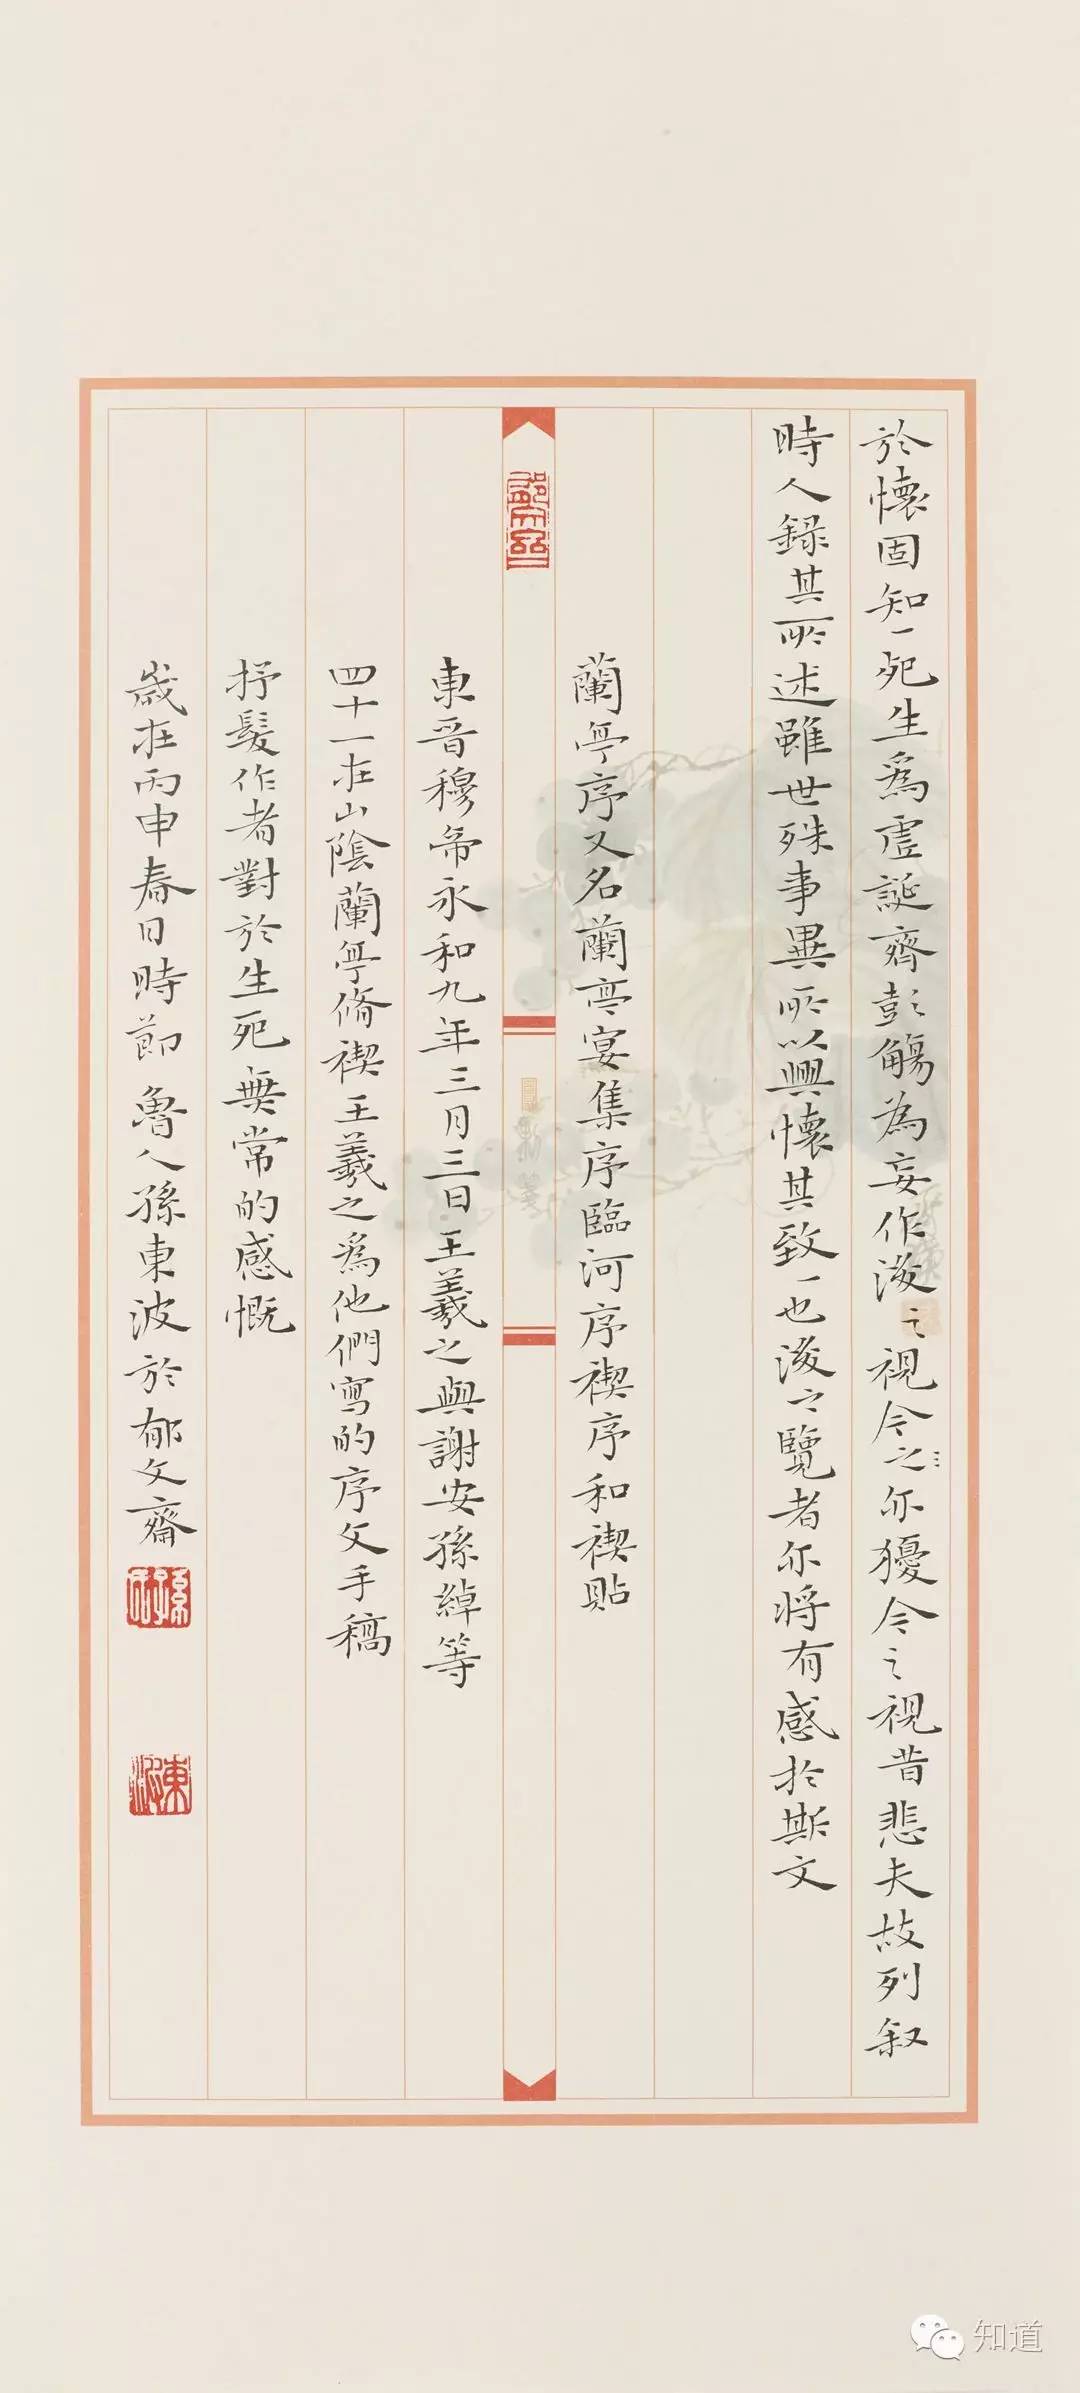 於懷固知一死生為虛誕齊彭殤為妄作後之視今之亦猶今之視昔悲夫故列叙
時人録其所述雖世殊事異所以興懷其致一也後之覽者亦將有感於斯文
蘭亭序又名蘭亭宴集序臨河序禊序和禊貼
東晉穆帝永和九年三月三日王羲之與謝安孫綽等
四十一在山陰蘭亭脩禊王羲之為他們寫的序文手稿
抒髮作者對於生死無常的感慨
歲在丙申春日時節 魯人孫東波於郁文齋
知道